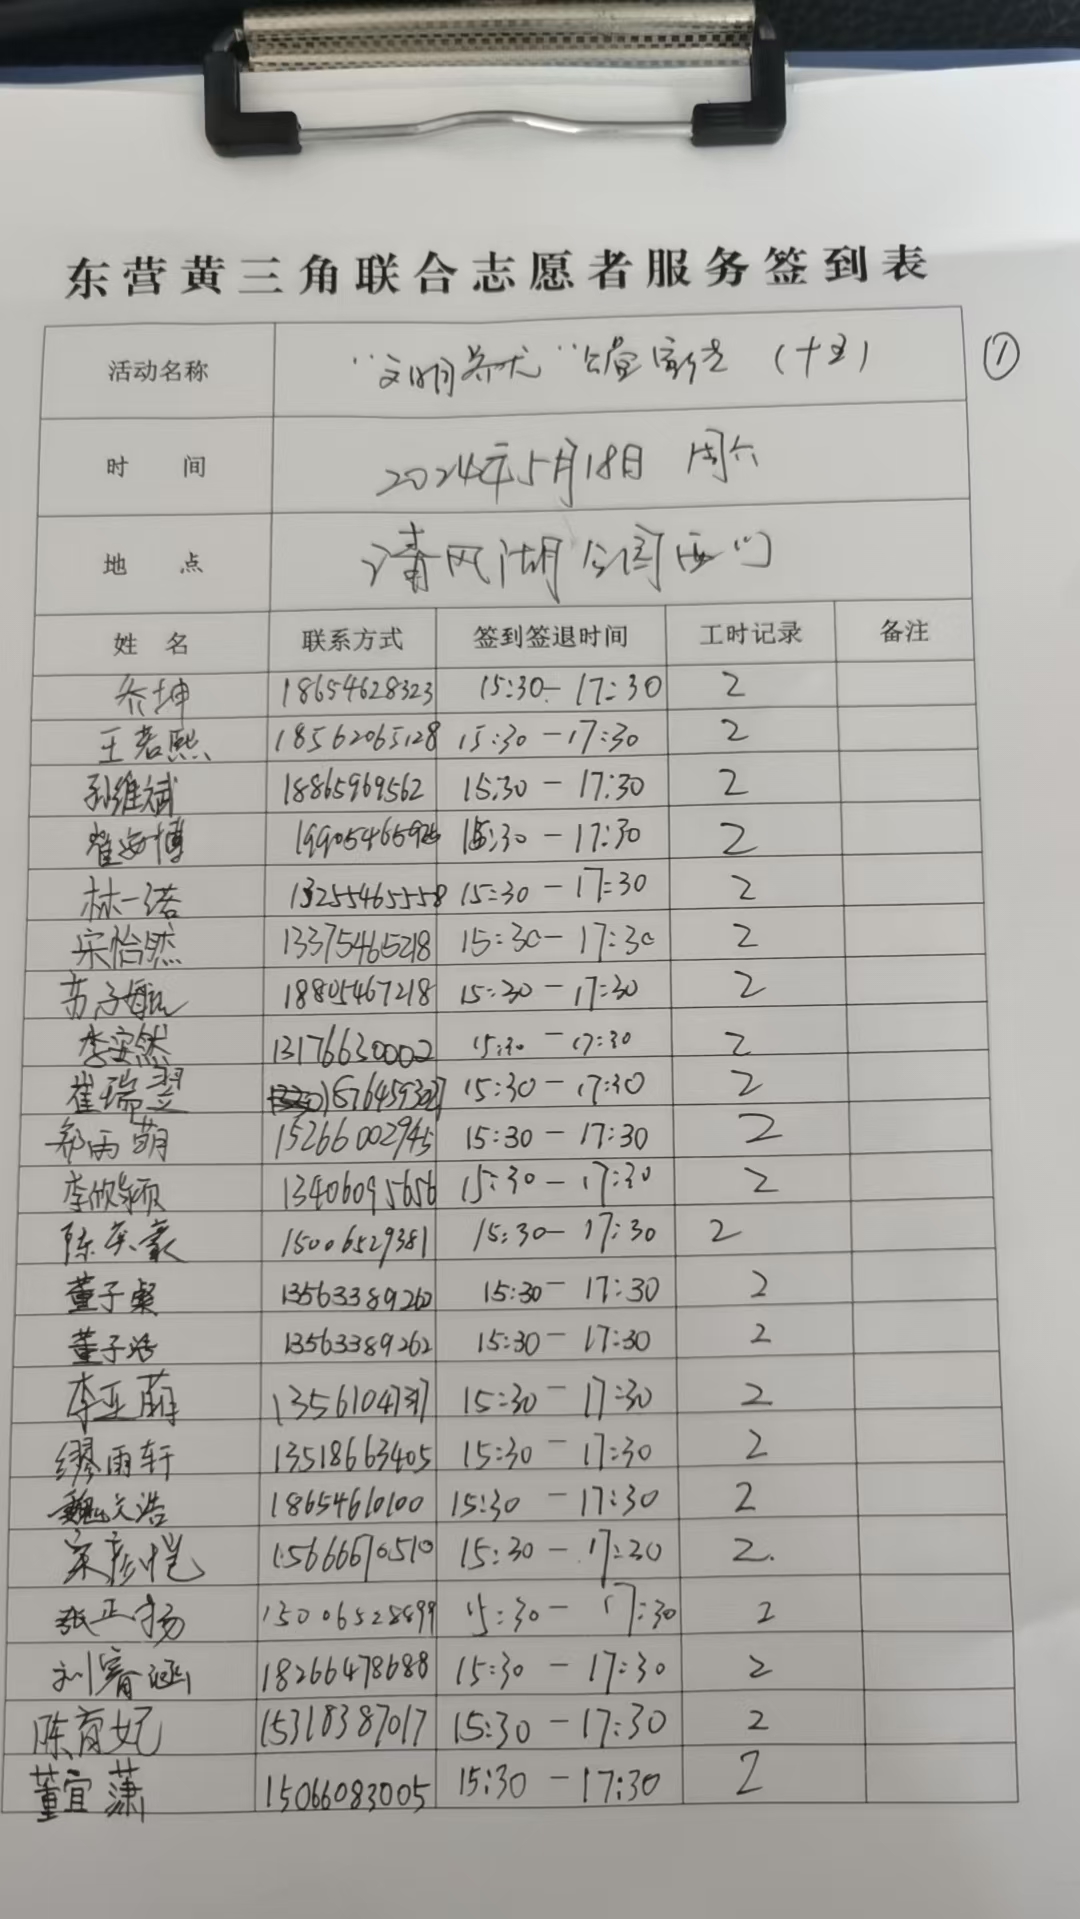 东营黄三角联合志愿者服务签到表
活动名称 "文明养犬"公益宣传（十五） ①
时 间 2024年5月18日 周六
地 点 清风湖公园西门
姓 名 联系方式 签到签退时间 工时记录 备注
乔坤 18654628323 15:30-17:30 2
王若熙 18562065128 15:30-17:30 2
孙维斌 18865969562 15:30-17:30 2
翟安博 19905465926 15:30-17:30 2
林一诺 13255465558 15:30-17:30 2
宋怡然 13375465218 15:30-17:30 2
苏子毓 18805467218 15:30-17:30 2
李安然 13176630002 15:30-17:30 2
崔瑞翌 15:30-17:30 2
郑雨萌 15266002945 15:30-17:30 2
李欣颖 13406095656 15:30-17:30 2
陈奕豪 15006529381 15:30-17:30 2
董子粲 13563389260 15:30-17:30 2
董子浩 13563389262 15:30-17:30 2
李亚萌 15:30-17:30 2
缪雨轩 13518663405 15:30-17:30 2
魏文浩 18654610100 15:30-17:30 2
宋彦恺 15666670510 15:30-17:30 2.
张正扬 15006528899 15:30-17:30 2
刘睿涵 18266478688 15:30-17:30 2
陈育妃 15318387017 15:30-17:30 2
董宜萧 15066083005 15:30-17:30 2